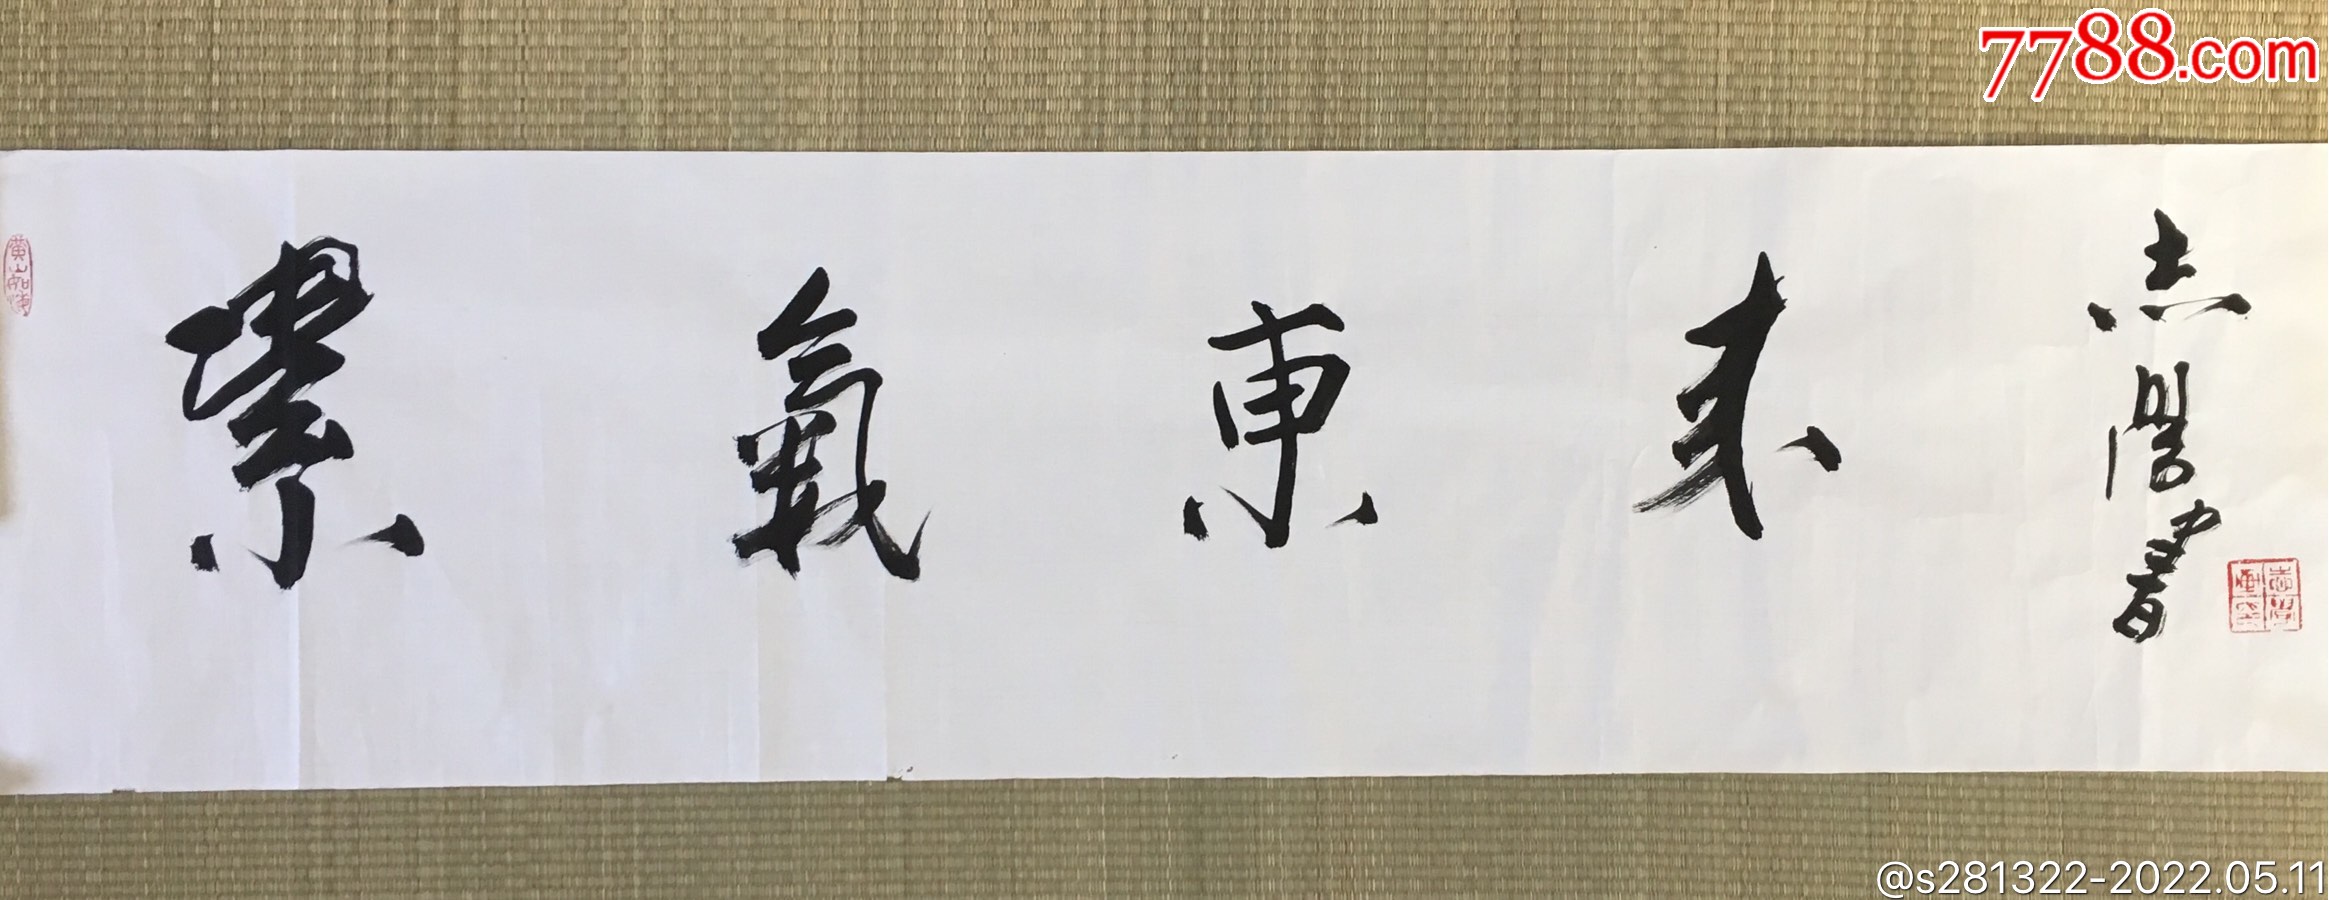 7788.com
紫氣東来
志書
@s281322-2022.05.11